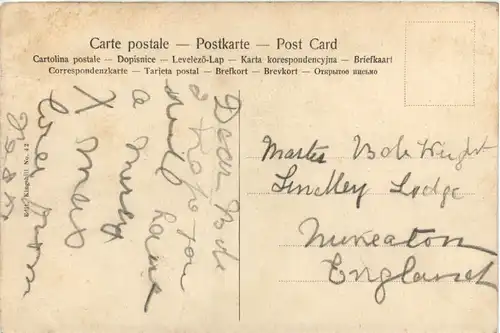 Carte postale — Postkarte — Post Card
Cartolina postale — Dopisnice — Levelező-Lap — Karta korespondencyjna — Briefkaart
Correspondenzkarte — Tarjeta postal — Brefkort — Brevkort — Открытое письмо
Dear Bob
I hope you
will have
a merry
X mas
love from
Master Bob Wright
Lindley Lodge
Nuneaton
England